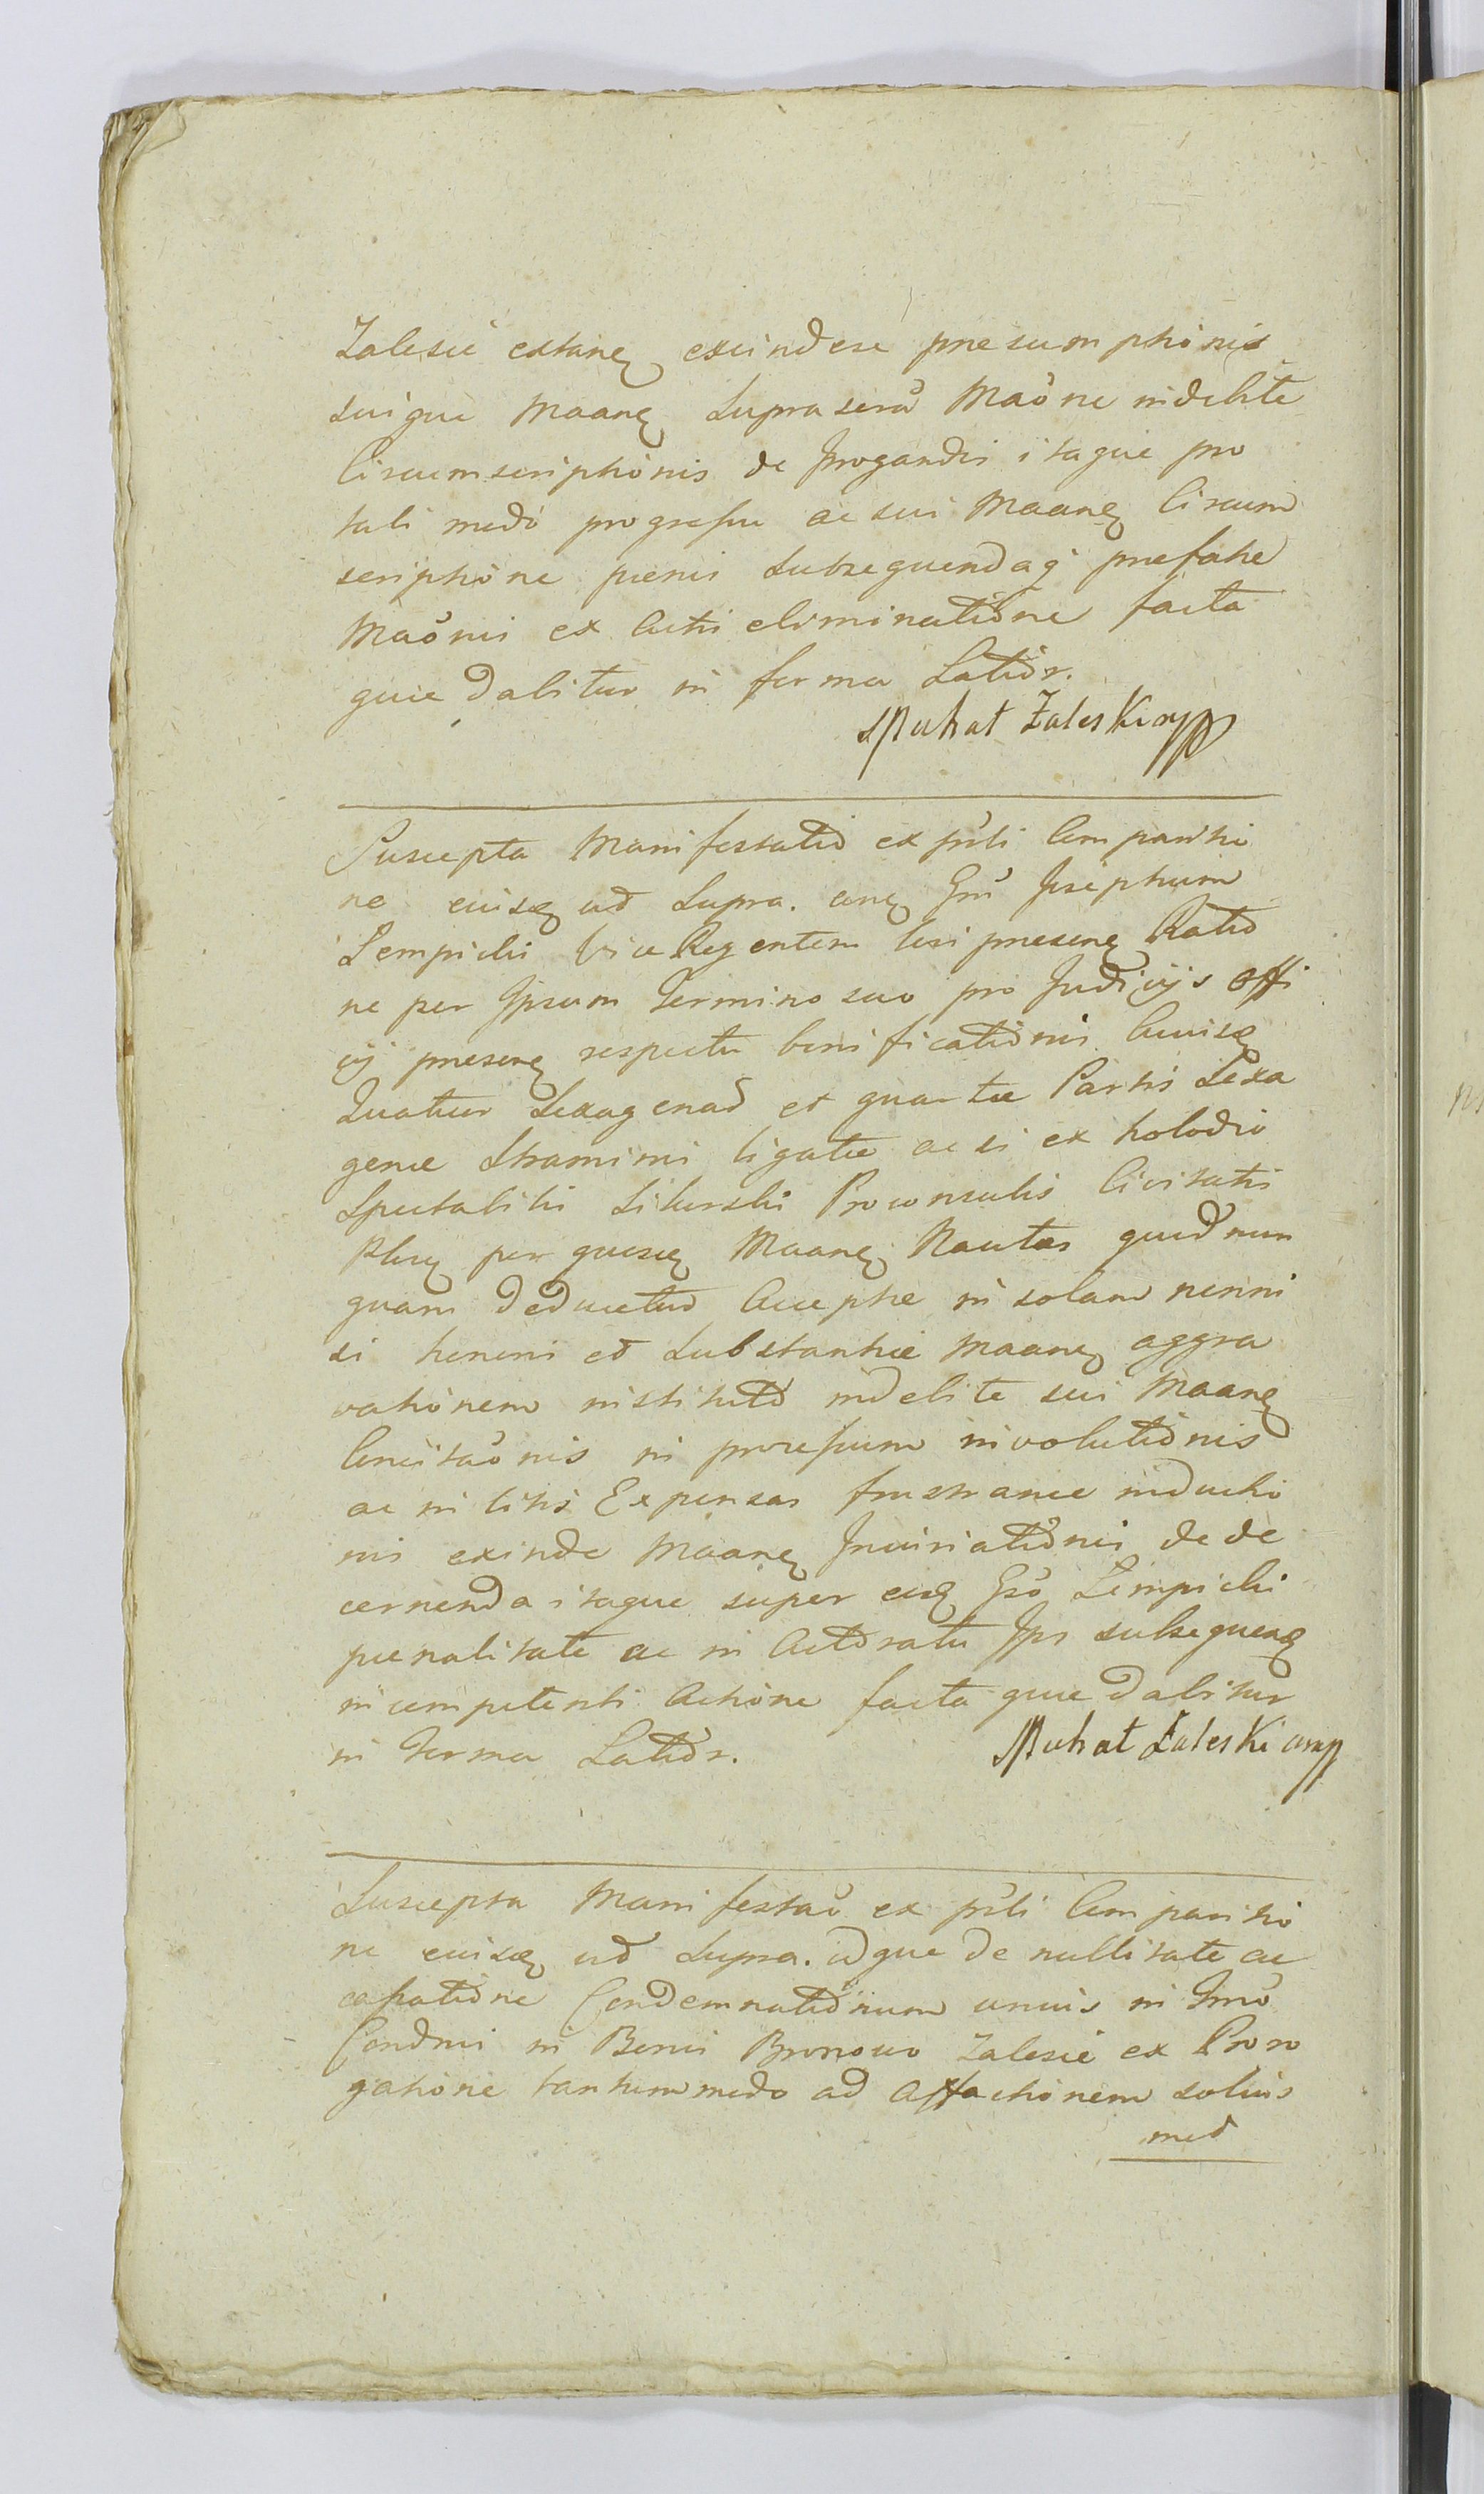 Zalesie extan exindese presumptionis
suique Maan suprascra Maone indebite
Circumscriptionis de Irrogandis itaque pro
tali modo progressu ac sui Maan Circum
scriptione penis subsequendaq prefate
Maonis ex Actis eliminatione facta
que dabitur in forma Latior.
Michał Zaleski mpp
Suscepta Manifestatio ex psti Comparitio
ne eiusd ut supra. cun Grm Josephum
Lempicki Vice Regentem Cesi presen Ratio
ne per Ipsum Termino suo pro Judicijs Offi
cij presen respectu bonificationis Cuiusd
Quatuor Sexagenar et quartæ Partis Sexa
genæ Straminis ligatæ ac si ex holodio
Spectabilis Sikorski Proconsulis Civitatis
per quosd Maan Nautas quod nun
quam deductur Acceptæ in solam nonni
si honoris et Substantiæ Maan aggra
vationem instituto indebite sui Maan
Concitaonis in processum involutionis
ac in litis Expensas frustraneæ inductio
nis exinde Maan Iniuriationis de de
cernenda itaque super eod Gro Lempicki
penalitate ac in Actoratu Ips subsequen
in competenti Actione facta que dabitur
in forma Latior.
Michał Zaleski mpp
Suscepta Manifestao ex psti Comparitio
ne eiusd ut supra. idque de nullitate ac
cassatione Condemnationum unius in Tmo
Condnis in Bonis Bronowo Zalesie ex Proro
gatione tantummodo ad Attactionem solius
mod